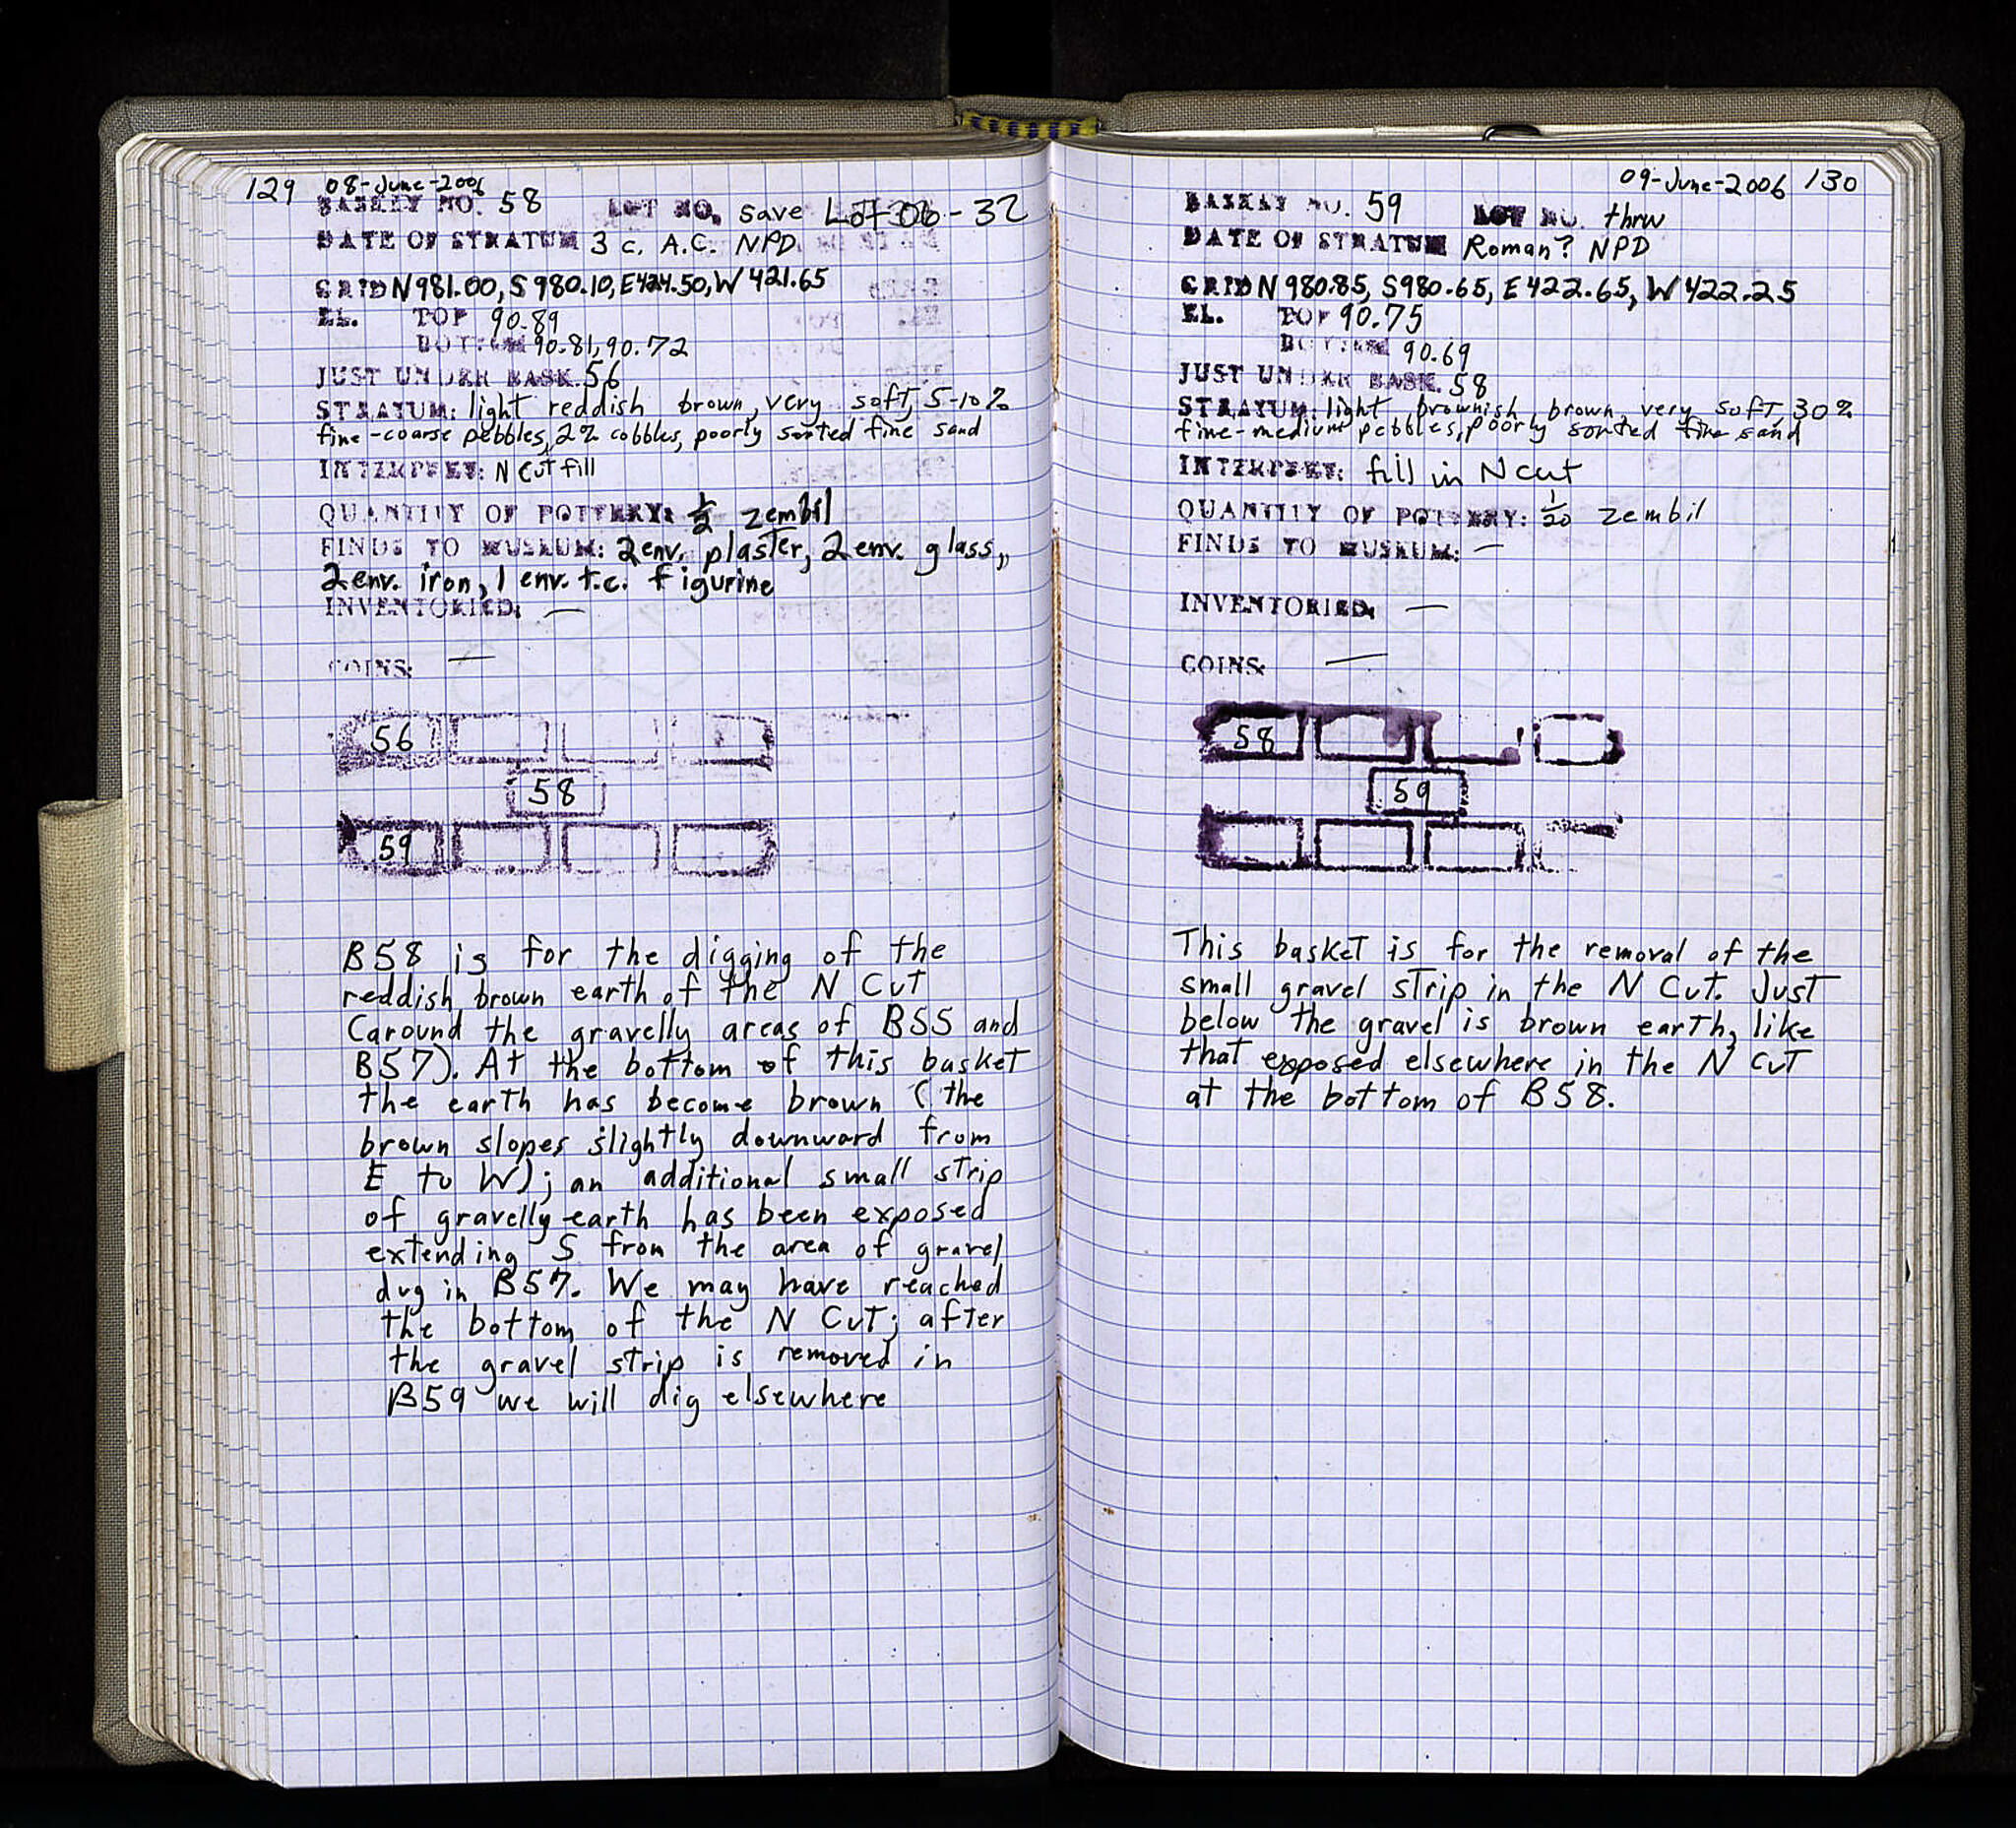 129 08-June-2006
BASKET NO. 58 LOT NO. save Lot 06-32
DATE OF STRATUM 3 c. A.C. NPD
GRID N 981.00, S 980.10, E 424.50, W 421.65
EL. TOP 90.89
BOTTOM 90.81, 90.72
JUST UNDER BASK. 56
STRATUM: light reddish brown, very soft, 5-10%
fine-coarse pebbles, 2% cobbles, poorly sorted fine sand
INTERPRET: N Cut fill
QUANTITY OF POTTERY: 1/2 zembil
FINDS TO MUSEUM: 2 env. plaster, 2 env. glass,
2 env. iron, 1 env. t.c. figurine
INVENTORIED: —
COINS: —
56
58
59
B58 is for the digging of the
reddish brown earth of the N Cut
(around the gravelly areas of B55 and
B57). At the bottom of this basket
the earth has become brown (the
brown slopes slightly downward from
E to W); an additional small strip
of gravelly earth has been exposed
extending S from the area of gravel
dug in B57. We may have reached
the bottom of the N Cut; after
the gravel strip is removed in
B59 we will dig elsewhere
09-June-2006 130
BASKET NO. 59 LOT NO. thrw
DATE OF STRATUM Roman? NPD
GRID N 980.85, S 980.65, E 422.65, W 422.25
EL. TOP 90.75
BOTTOM 90.69
JUST UNDER BASK. 58
STRATUM: light brownish brown, very soft, 30%
fine-medium pebbles, poorly sorted fine sand
INTERPRET: fill in N cut
QUANTITY OF POTTERY: 1/20 zembil
FINDS TO MUSEUM: —
INVENTORIED: —
COINS: —
58
59
This basket is for the removal of the
small gravel strip in the N Cut. Just
below the gravel is brown earth, like
that exposed elsewhere in the N Cut
at the bottom of B58.